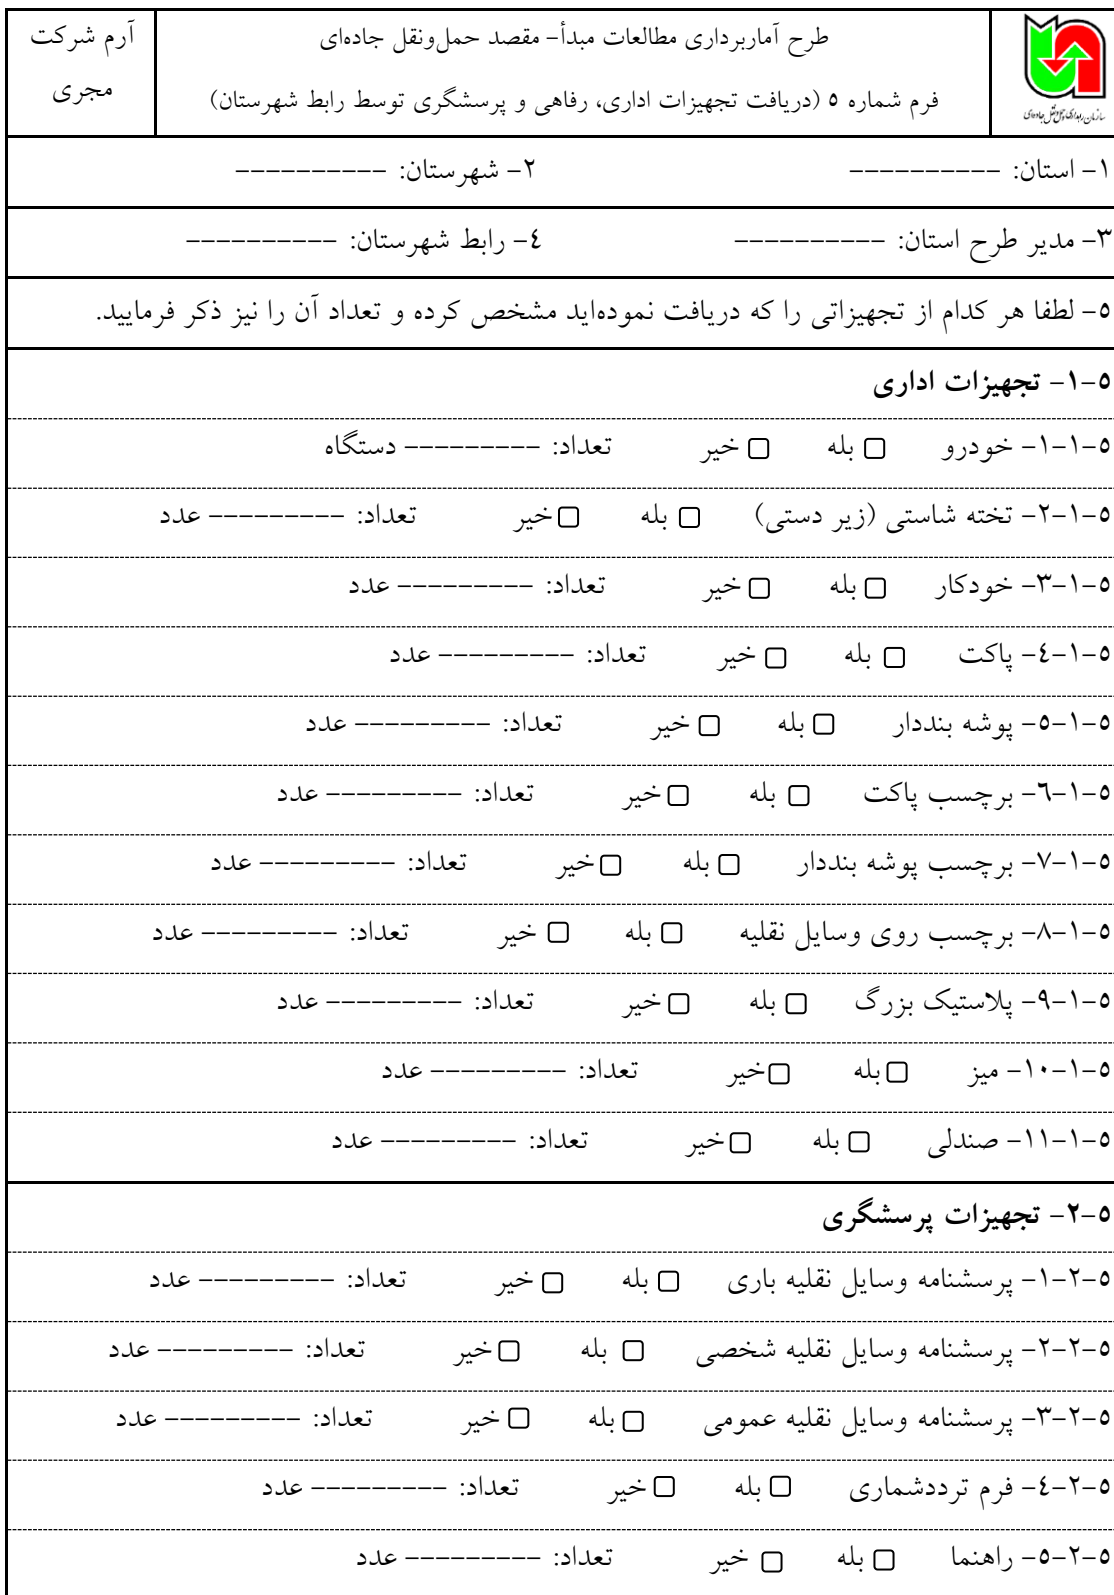 طرح آماربرداری مطالعات مبدأ- مقصد حمل‌ونقل جاده‌ای
فرم شماره ۵ (دریافت تجهیزات اداری، رفاهی و پرسشگری توسط رابط شهرستان)
آرم شرکت
مجری
۱- استان: ---------- ۲- شهرستان: ----------
۳- مدیر طرح استان: ---------- ۴- رابط شهرستان: ----------
۵- لطفا هر کدام از تجهیزاتی را که دریافت نموده‌اید مشخص کرده و تعداد آن را نیز ذکر فرمایید.
۵-۱- تجهیزات اداری
۵-۱-۱- خودرو □ بله □ خیر تعداد: --------- دستگاه
۵-۱-۲- تخته شاستی (زیر دستی) □ بله □ خیر تعداد: --------- عدد
۵-۱-۳- خودکار □ بله □ خیر تعداد: --------- عدد
۵-۱-۴- پاکت □ بله □ خیر تعداد: --------- عدد
۵-۱-۵- پوشه بنددار □ بله □ خیر تعداد: --------- عدد
۵-۱-۶- برچسب پاکت □ بله □ خیر تعداد: --------- عدد
۵-۱-۷- برچسب پوشه بنددار □ بله □ خیر تعداد: --------- عدد
۵-۱-۸- برچسب روی وسایل نقلیه □ بله □ خیر تعداد: --------- عدد
۵-۱-۹- پلاستیک بزرگ □ بله □ خیر تعداد: --------- عدد
۵-۱-۱۰- میز □ بله □ خیر تعداد: --------- عدد
۵-۱-۱۱- صندلی □ بله □ خیر تعداد: --------- عدد
۵-۲- تجهیزات پرسشگری
۵-۲-۱- پرسشنامه وسایل نقلیه باری □ بله □ خیر تعداد: --------- عدد
۵-۲-۲- پرسشنامه وسایل نقلیه شخصی □ بله □ خیر تعداد: --------- عدد
۵-۲-۳- پرسشنامه وسایل نقلیه عمومی □ بله □ خیر تعداد: --------- عدد
۵-۲-۴- فرم ترددشماری □ بله □ خیر تعداد: --------- عدد
۵-۲-۵- راهنما □ بله □ خیر تعداد: --------- عدد